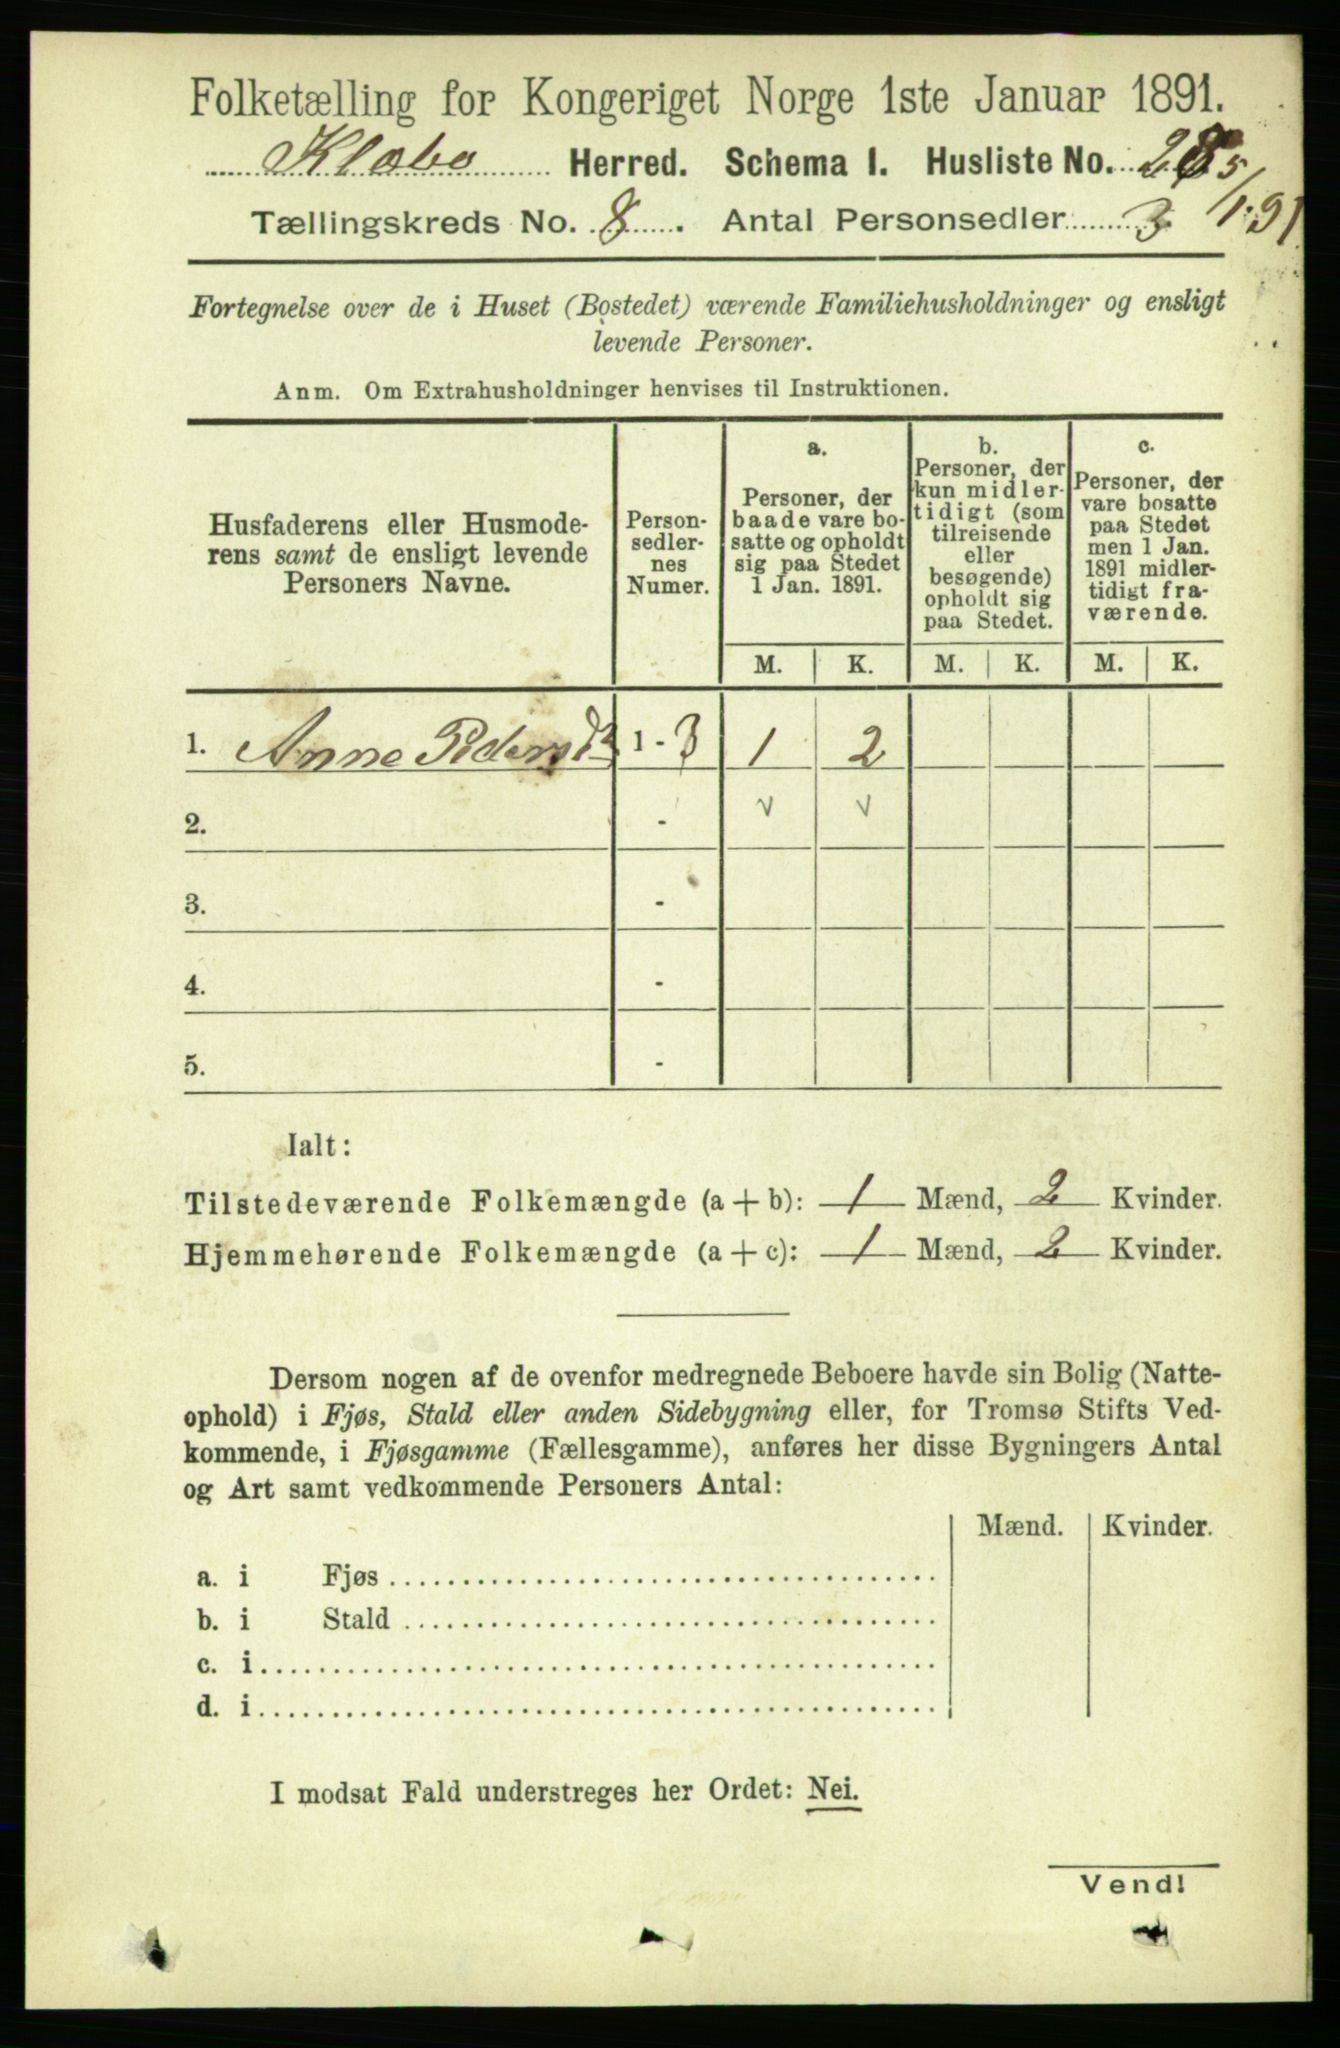 Folketælling for Kongeriget Norge 1ste Januar 1891.
Klæbo Herred. Schema I. Husliste No. 28 5/1.91
Tællingskreds No. 8. Antal Personsedler 3
Fortegnelse over de i Huset (Bostedet) værende Familiehusholdninger og ensligt
levende Personer.
Anm. Om Extrahusholdninger henvises til Instruktionen.
Husfaderens eller Husmode-
rens samt de ensligt levende
Personers Navne.
Person-
sedler-
nes
Numer.
a.
Personer, der
baade vare bo-
satte og opholdt
sig paa Stedet
1 Jan. 1891.
b.
Personer, der
kun midler-
tidigt (som
tilreisende
eller
besøgende)
opholdt sig
paa Stedet.
c.
Personer, der
vare bosatte
paa Stedet
men 1 Jan.
1891 midler-
tidigt fra-
værende.
M. K. M. K. M. K.
1. Anne Pedersd 1 - 3 1 2
2. - v v
3. -
4. -
5. -
Ialt:
Tilstedeværende Folkemængde (a + b): 1 Mænd, 2 Kvinder.
Hjemmehørende Folkemængde (a + c): 1 Mænd, 2 Kvinder.
Dersom nogen af de ovenfor medregnede Beboere havde sin Bolig (Natte-
ophold) i Fjøs, Stald eller anden Sidebygning eller, for Tromsø Stifts Ved-
kommende, i Fjøsgamme (Fællesgamme), anføres her disse Bygningers Antal
og Art samt vedkommende Personers Antal:
Mænd. Kvinder.
a. i Fjøs
b. i Stald
c. i
d. i
I modsat Fald understreges her Ordet: Nei.
Vend!